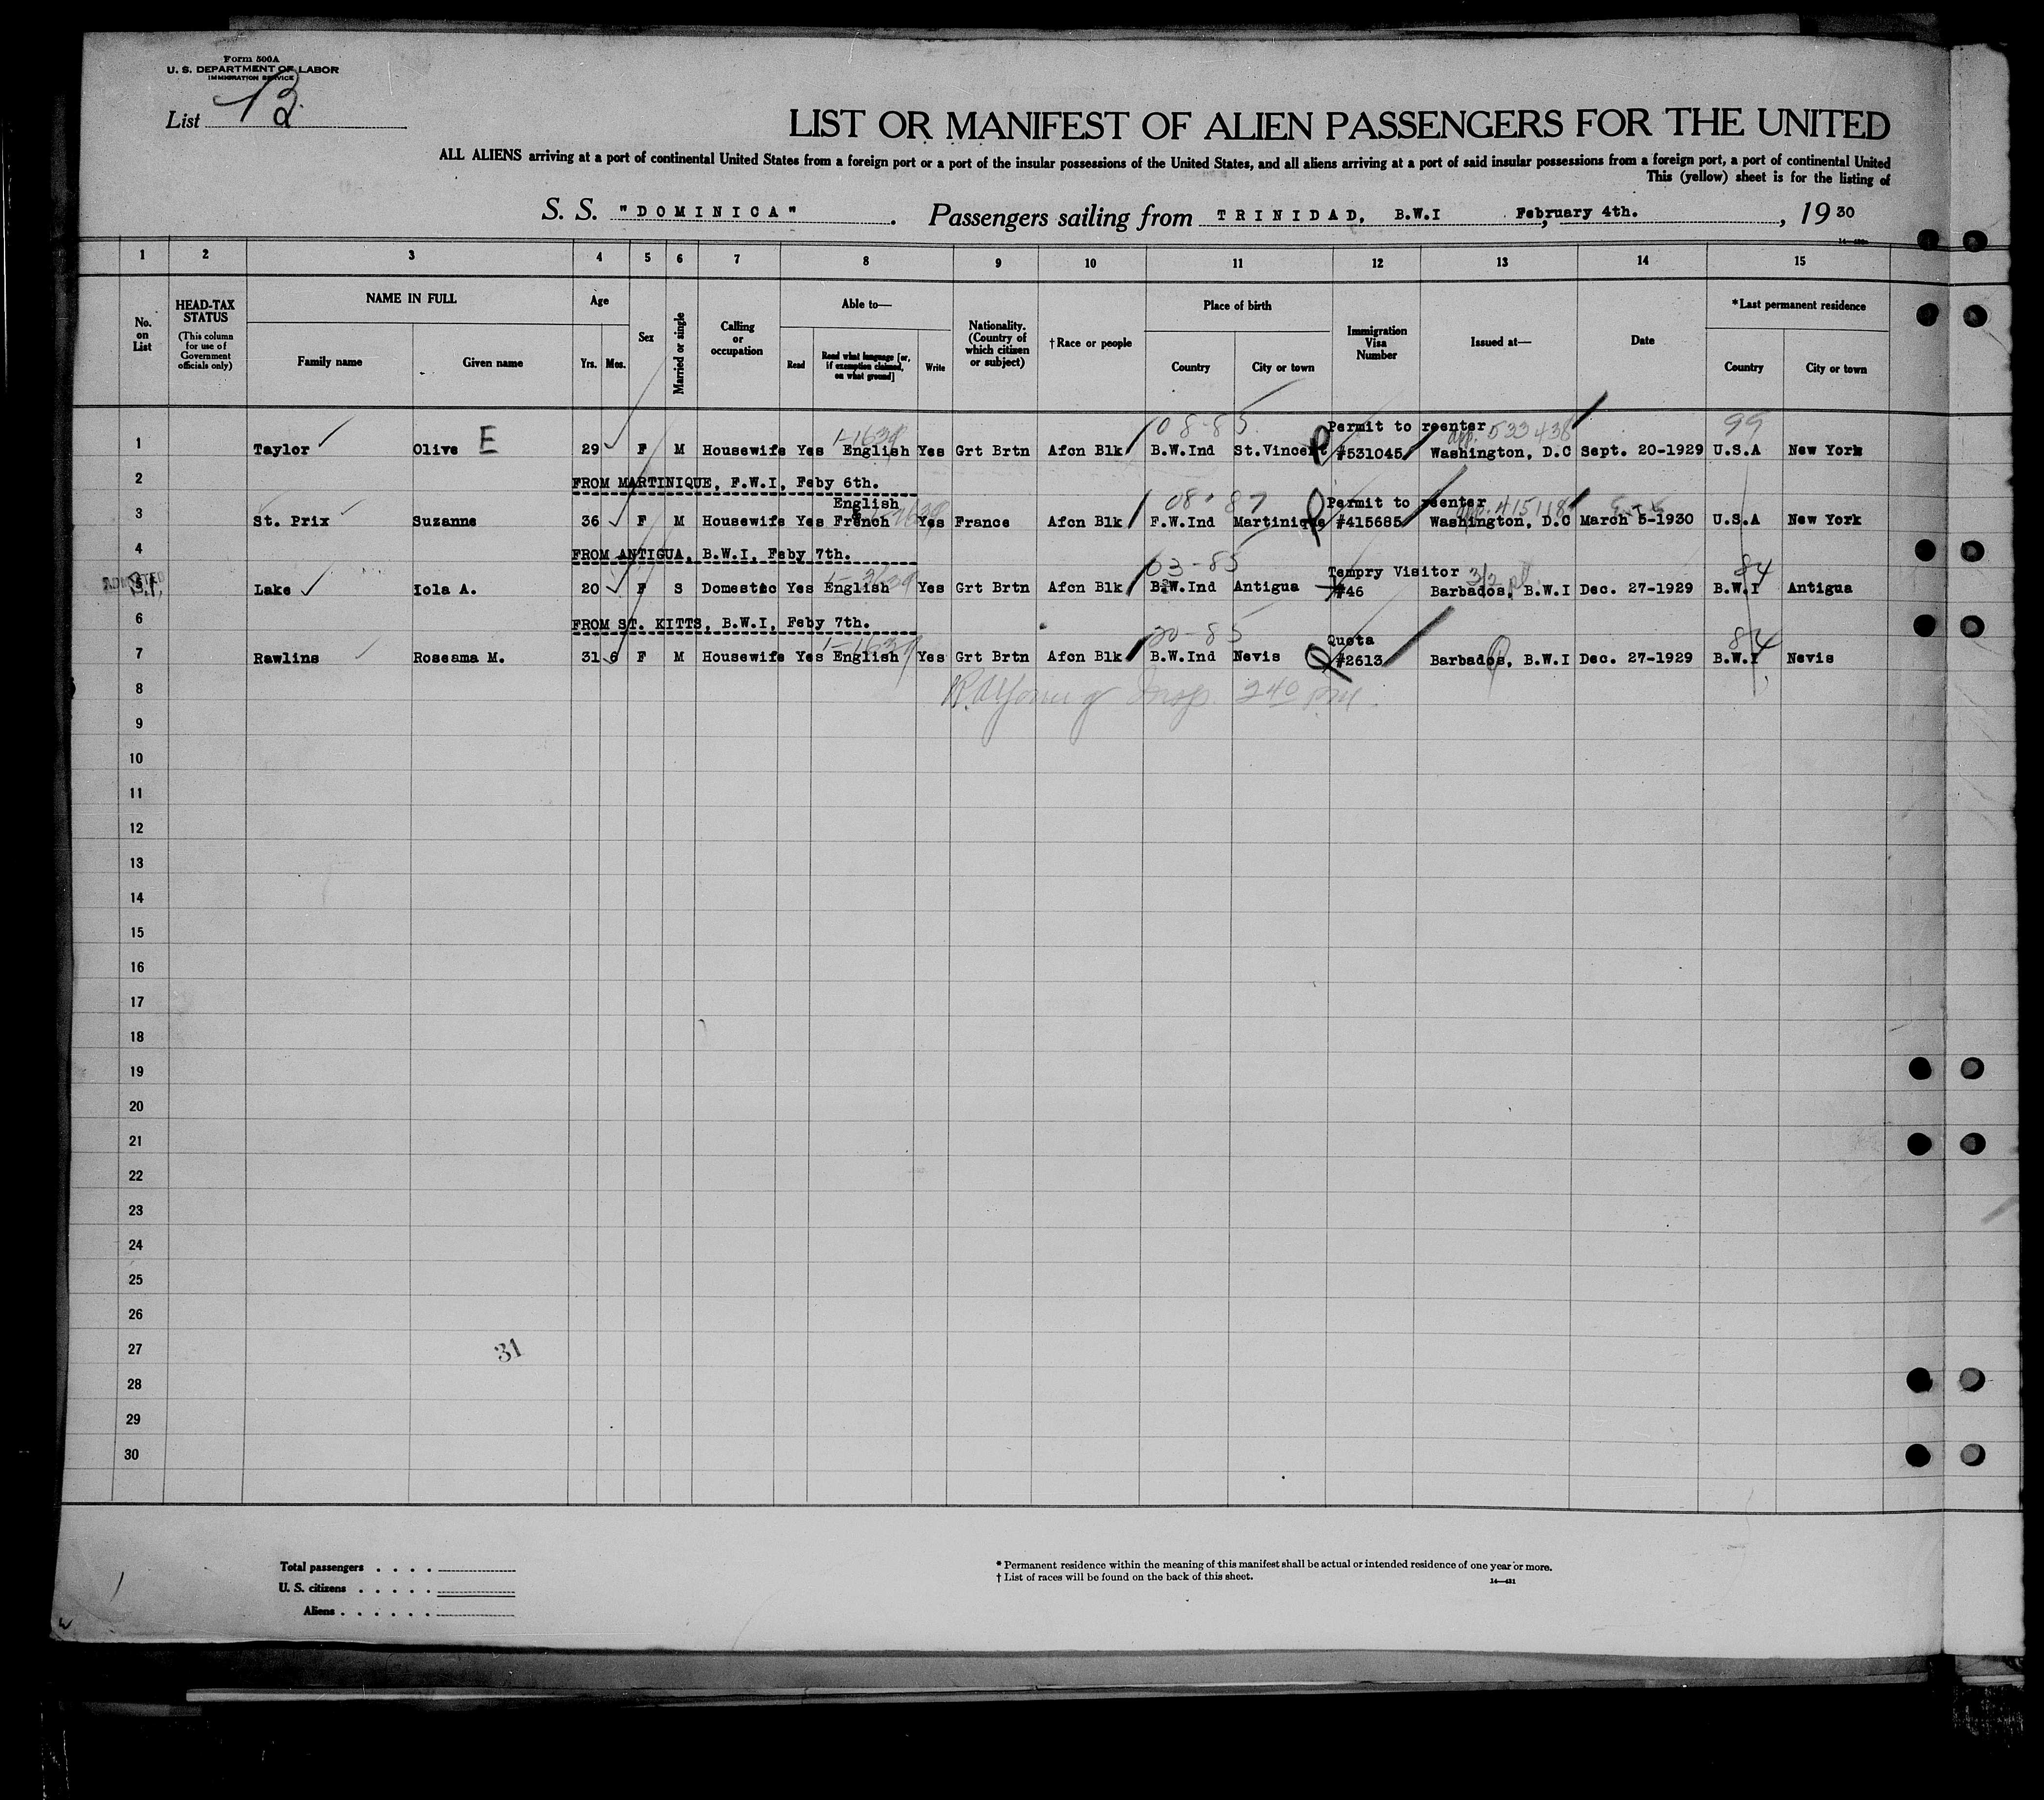 Form 500A
U. S. DEPARTMENT OF LABOR
IMMIGRATION SERVICE
List 13
LIST OR MANIFEST OF ALIEN PASSENGERS FOR THE UNITED
ALL ALIENS arriving at a port of continental United States from a foreign port or a port of the insular possessions of the United States, and all aliens arriving at a port of said insular possessions from a foreign port, a port of continental United
This (yellow) sheet is for the listing of
S. S. "DOMINICA". Passengers sailing from TRINIDAD, B.W.I February 4th., 1930
1 2 3 4 5 6 7 8 9 10 11 12 13 14 15
No. on List
HEAD-TAX STATUS (This column for use of Government officials only)
NAME IN FULL
Family name Given name
Age
Yrs. Mos.
Sex
Married or single
Calling or occupation
Able to—
Read
Read what language [or, if exemption claimed, on what ground]
Write
Nationality. (Country of which citizen or subject)
†Race or people
Place of birth
Country City or town
Immigration Visa Number
Issued at—
Date
*Last permanent residence
Country City or town
08-85 Permit to reenter 533438 99
1 Taylor Olive E 29 F M Housewife Yes English Yes Grt Brtn Afcn Blk B.W.Ind St.Vincent #531045 Washington, D.C Sept. 20-1929 U.S.A New York
2 FROM MARTINIQUE, F.W.I, Feby 6th.
English 08-87 Permit to reenter
3 St. Prix Suzanne 36 F M Housewife Yes & French Yes France Afcn Blk F.W.Ind Martinique #415685 Washington, D.C March 5-1930 U.S.A New York
4 FROM ANTIGUA, B.W.I, Feby 7th.
03-85 Tempry Visitor 84
ADMITTED S.I. Lake Iola A. 20 F S Domestic Yes English Yes Grt Brtn Afcn Blk B.W.Ind Antigua #46 Barbados, B.W.I Dec. 27-1929 B.W.I Antigua
6 FROM ST. KITTS, B.W.I, Feby 7th.
20-85 Quota 84
7 Rawlins Roseama M. 31 6 F M Housewife Yes English Yes Grt Brtn Afcn Blk B.W.Ind Nevis #2613 Barbados, B.W.I Dec. 27-1929 B.W.I Nevis
8 Young Insp. 240 PM
9
10
11
12
13
14
15
16
17
18
19
20
21
22
23
24
25
26
27 31
28
29
30
Total passengers
U. S. citizens
Aliens
* Permanent residence within the meaning of this manifest shall be actual or intended residence of one year or more.
† List of races will be found on the back of this sheet.
14—431